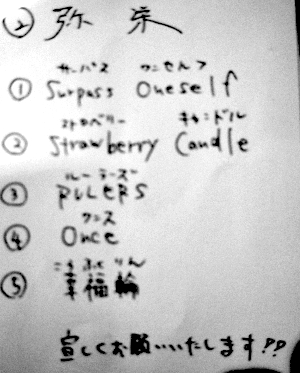 ② 弥栄
サーパス ワンセルフ
① Surpass Oneself
ストロベリー キャンドル
② Strawberry Candle
ルーラーズ
③ RULERS
ワンス
④ Once
こうふくりん
⑤ 幸福輪
宜しくお願いいたします!!